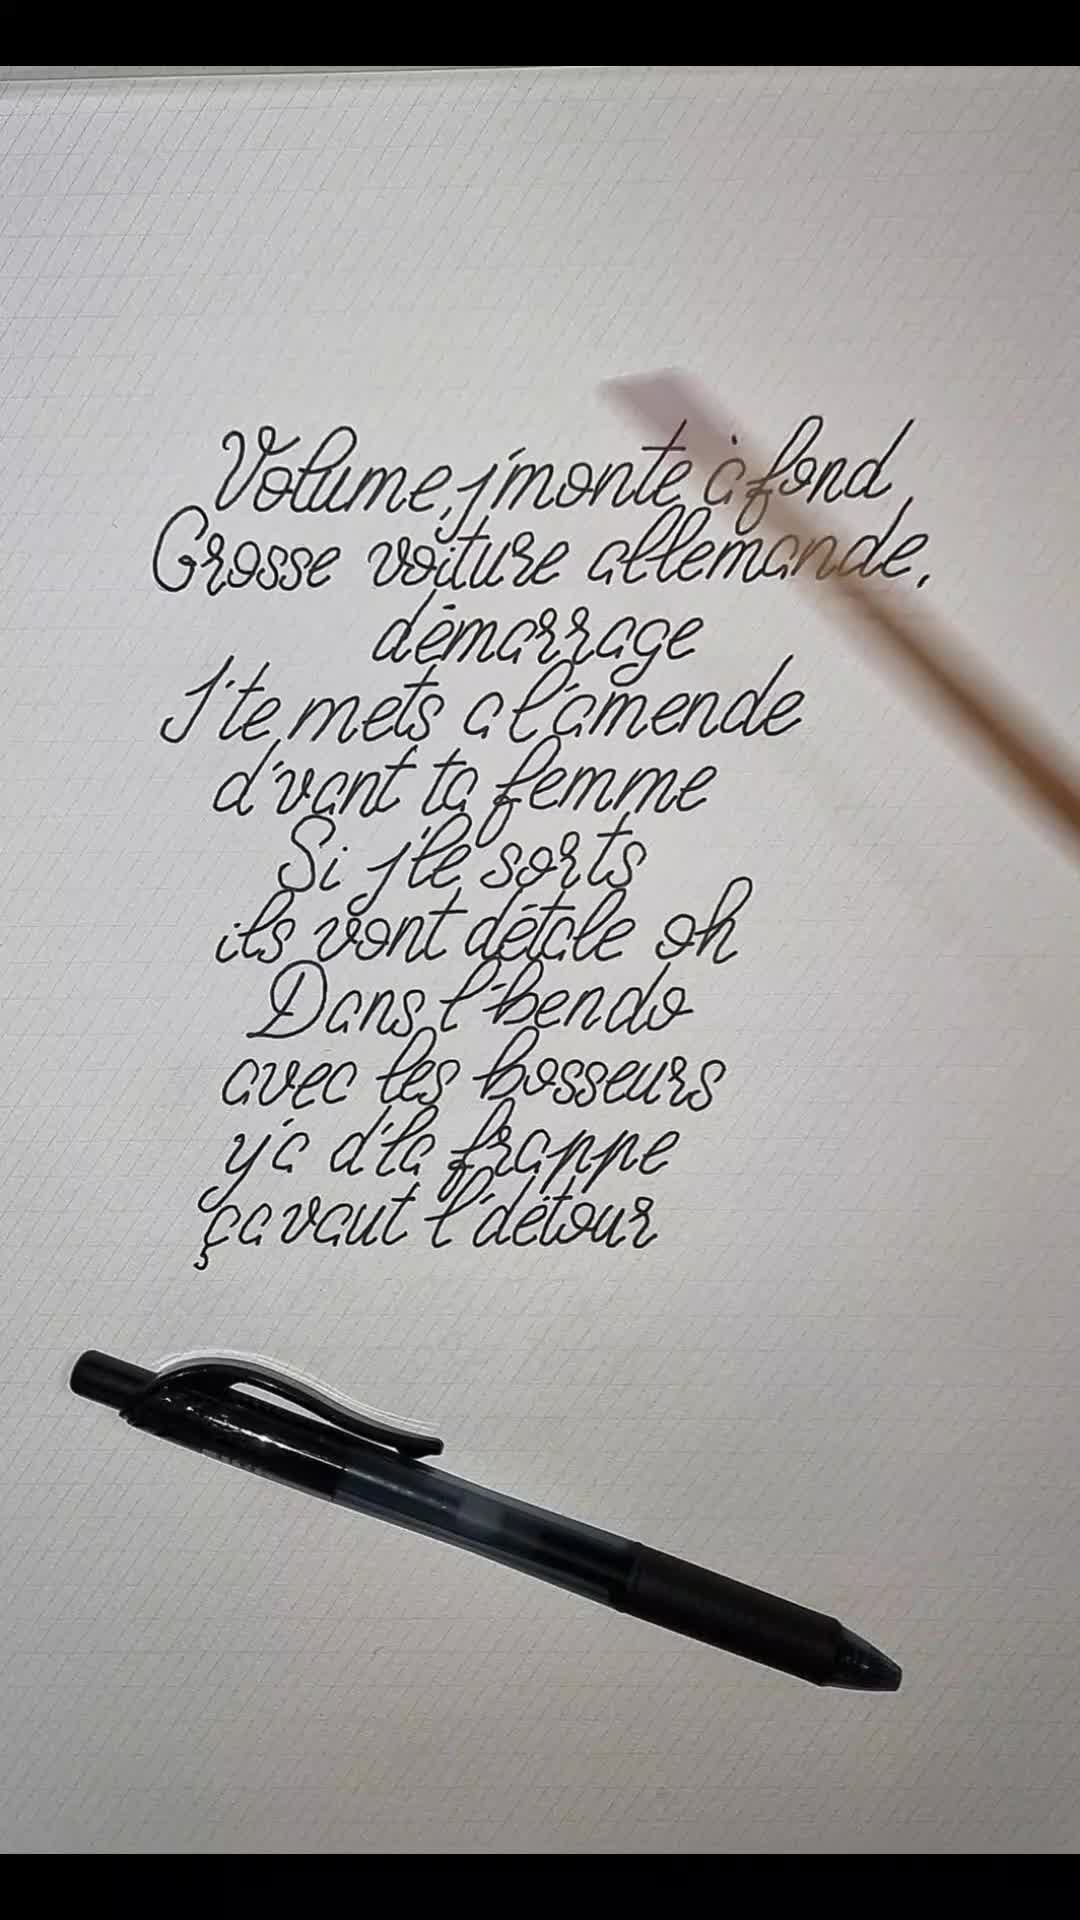 Volume, j'monte à fond
Grosse voiture allemande,
démarrage
J'te mets a l'amende
d'vant ta femme
Si j'le sorts
ils vont détale oh
Dans l'bendo
avec les bosseurs
y'a d'la frappe
ça vaut l'détour